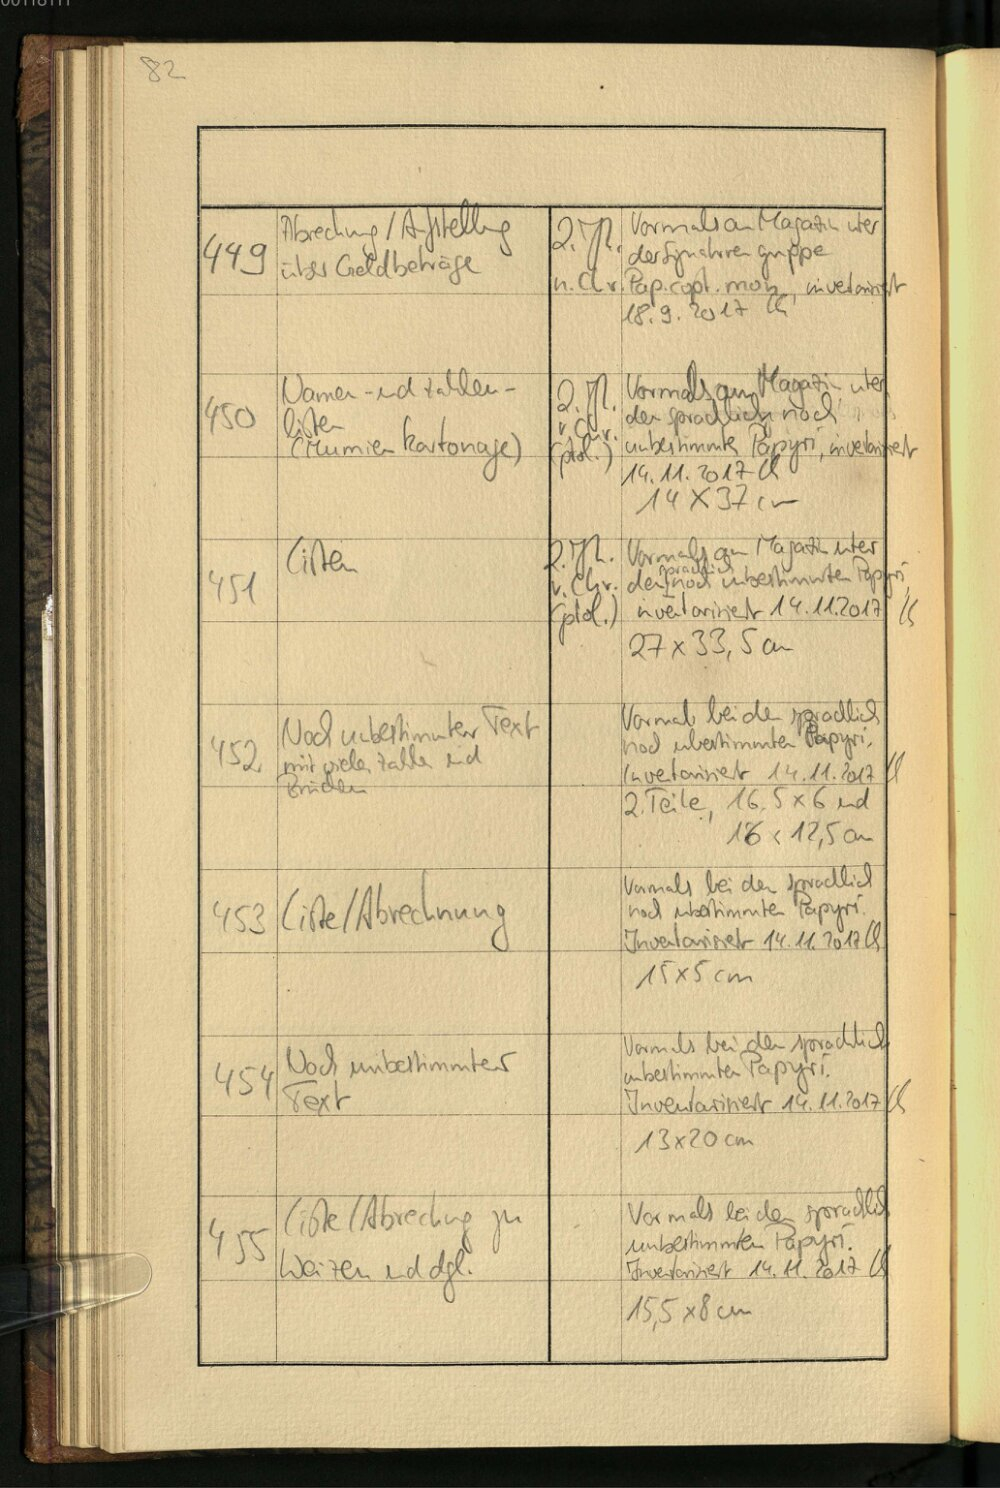 00118111
82
449
Abrechnung / Aufstellung
über Geldbeträge
2. Jh.
n. Chr.
Vormals am Magazin unter
der Signaturengruppe
Pap. copt. mon., inventarisiert
18. 9. 2017
450
Namen- und Zahlen-
listen
(Mumienkartonage)
2. Jh.
v. Chr.
(ptol.)
Vormals am Magazin unter
den sprachlich noch
unbestimmten Papyri, inventarisiert
14. 11. 2017
14 x 37 cm
451
Listen
2. Jh.
v. Chr.
(ptol.)
Vormals am Magazin unter
den sprachlich noch unbestimmten Papyri,
inventarisiert 14.11.2017
27 x 33,5 cm
452
Noch unbestimmter Text
mit vielen Zahlen und
Brüchen
Vormals bei den sprachlich
noch unbestimmten Papyri.
Inventarisiert 14.11.2017
2 Teile, 16,5 x 6 und
16 x 12,5 cm
453
Liste/Abrechnung
Vormals bei den sprachlich
noch unbestimmten Papyri.
Inventarisiert 14.11.2017
15 x 5 cm
454
Noch unbestimmter
Text
Vormals bei den sprachlich
unbestimmten Papyri.
Inventarisiert 14.11.2017
13 x 20 cm
455
Liste/Abrechnung zu
Weizen und dgl.
Vormals bei den sprachlich
unbestimmten Papyri.
Inventarisiert 14.11.2017
15,5 x 8 cm